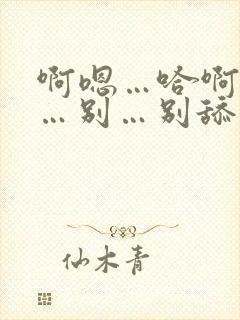 啊嗯…哈啊
…别…别舔
仙木青